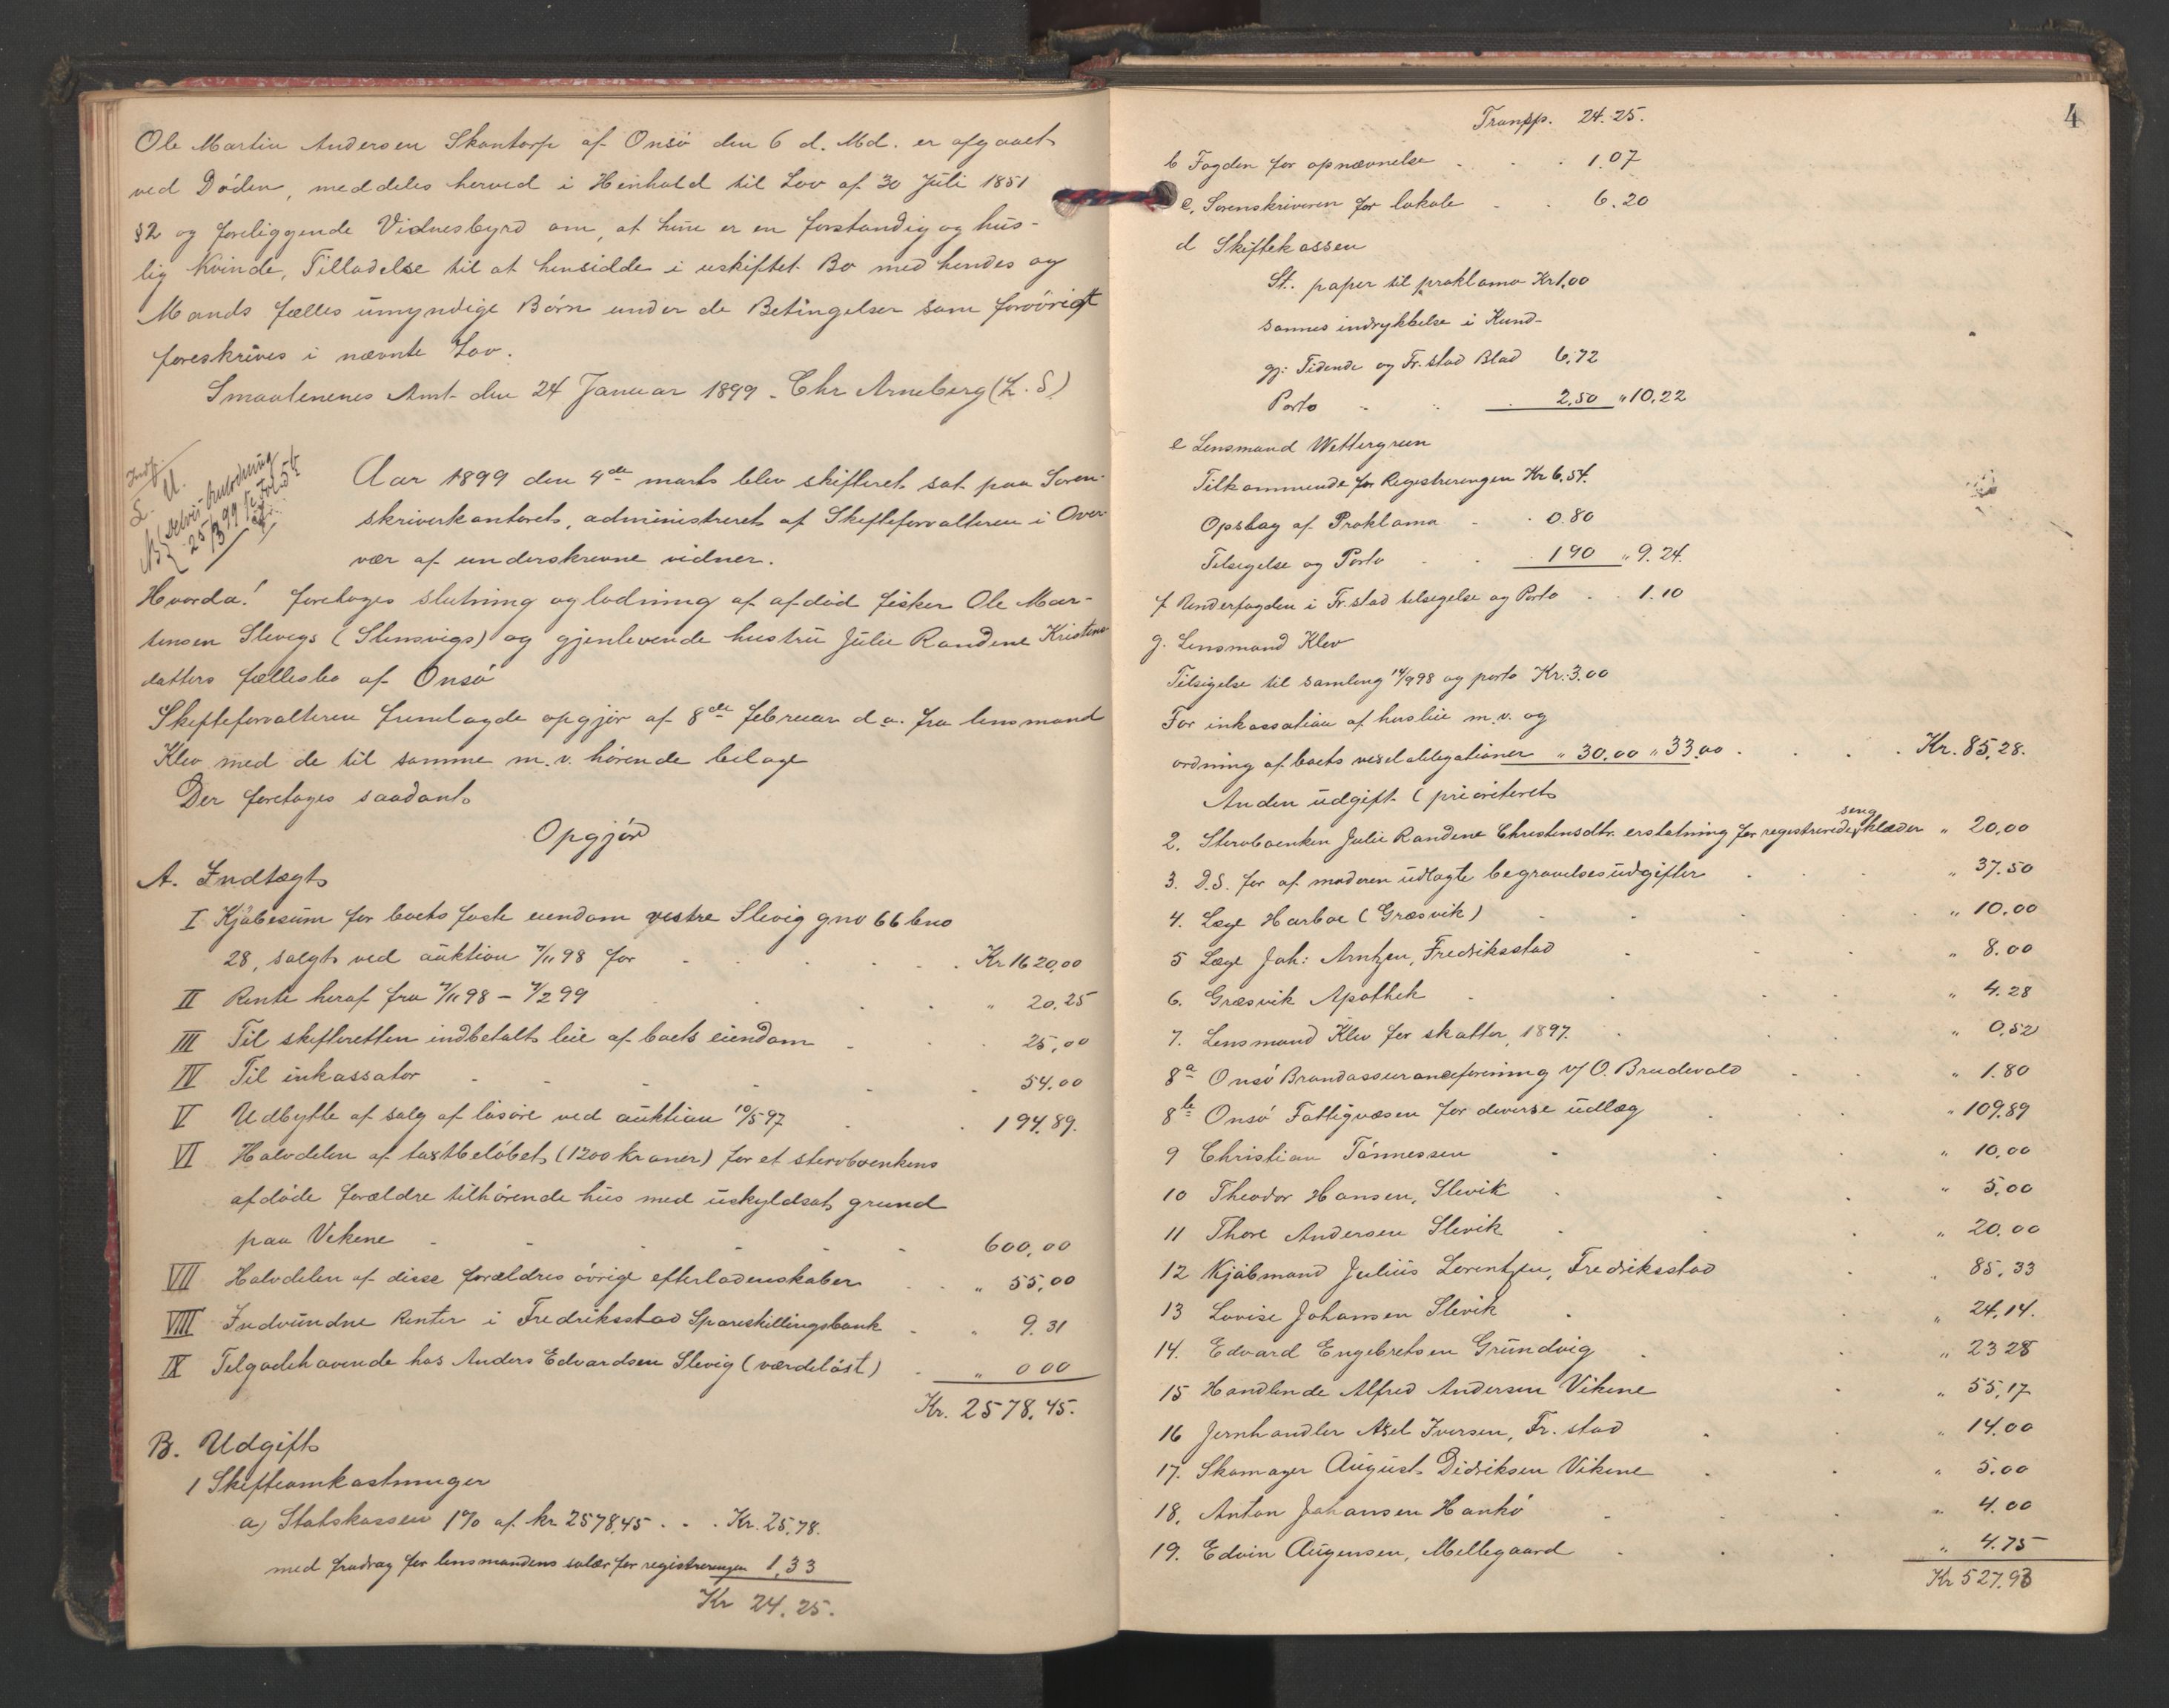 Ole Martin Andersen Skantorp af Onsö den 6 d. Md. er afgaaet
ved Döden, meddeles herved i Henhold til Lov af 30 Juli 1851
§2 og foreliggende Vidnesbyrd om, at hun er en forstandig og hus-
lig Kvinde, Tilladelse til at hensidde i uskiftet Bo med hendes og
Mands fælles umyndige Börn under de Betingelser som forövrigt
foreskrives i nævnte Lov.
Smaalenenes Amt den 24 Januar 1899. Chr Arneberg (L. S)
Aar 1899 den 4de marts blev skifteret sat paa Soren-
skriverkontoret, administreret af Skifteforvalteren i Over-
vær af underskrevne vidner.
Hvorda! foretoges slutning og lodning af afdöd fisker Ole Mar-
tinsen Slevigs (Slensvigs) og gjenlevende hustru Julie Randine Kristens
datters fællesbo af Onsö
Skifteforvalteren fremlagde opgjör af 8de februar d.a. fra lensmand
Klev med de til samme m.v. hörende bilage
Der foretoges saadant
Opgjör
A. Indtægt
I Kjöbesum for boets faste eiendom vestre Slevig gno 66 bno
28, solgt ved auktion 7/11 98 for Kr 1620,00
II Rente heraf fra 7/11 98 - 7/2 99 " 20.25
III Til skifteretten indbetalt leie af boets eiendom 25,00
IV Til inkassator 54.00
V Udbytte af salg af lösöre ved auktion 10/5 97 194.89.
VI Halvdelen af taxtbelöbet (1200 kroner) for et stervboenkens
afdöde forældre tilhörende hus med uskyldsat grund
paa Vikene 600,00
VII Halvdelen af disse forældres övrige efterladenskaber " 55,00
VIII Indvundne Renter i Fredriksstad Spareskillingsbank " 9.31
IX Tilgodehavende hos Anders Edvardsen Slevig (værdelöst) " 0 00
Kr. 2578,45.
B. Udgift
1 Skifteomkostninger
a) Statskassen 1% af kr 2578,45 . . . Kr. 25,78.
med fradrag for lensmandens salær for registreringen 1,33
Kr 24.25.
4
Transp. 24.25.
b Fogden for opnævnelse 1.07
c, Sorenskriveren for lokale 6.20
d Skiftekassen
St. papir til proklama Kr 1,00
sammes indrykkelse i Kund-
gj: Tidende og Fr.stad Blad 6,72
Porto 2,50 " 10,22
e Lensmand Wettergreen
Tilkommende for Registreringen Kr 6,54.
Opslag af Proklama 0.80
Tilsigelse og Porto 1 90 " 9.24.
f Underfogden i Fr.stad tilsigelse og Porto 1.10
g. Lensmand Klev
Tilsigelse til samling 14/9 98 og porto Kr: 3.00
For inkassation af husleie m.v. og
ordning af boets vexelobligationer " 30,00 " 33,00 Kr. 85,28.
Anden udgift (prioriteret
2. Stervboenken Julie Randine Christensdtr. erstatning for registrerede sengklæder " 20,00
3. D.S. for af moderen udlagte begravelsesudgifter " 37.50
4. Læge Harboe (Græsvik) " 10.00
5 Læge Joh: Arntzen, Fredriksstad " 8.00
6. Græsvik Apothek " 4.28
7. Lensmand Klev for skatter, 1897. " 0,52
8a Onsö Brandassuranceforening v/ O. Brudevold " 1.80
8b Onsö Fattigvæsen for diverse udlæg " 109,89
9 Christian Tönnessen " 10,00
10 Theodor Hansen, Slevik " 5,00
11 Thore Andersen Slevik " 20.00
12 Kjöbmand Julius Lorentzen, Fredriksstad " 85,33
13 Lovise Johansen Slevik " 24,14.
14. Edvard Engebretsen Grundvig " 23 28
15 Handlende Alfred Andersen Vikene " 55,17
16 Jernhandler Axel Iversen, Fr. stad " 14.00
17. Skomager August Didriksen Vikene " 5.00
18, Anton Johansen Hankö " 4.00
19. Edvin Augensen, Mellegaard " 4.75
Kr 527.93